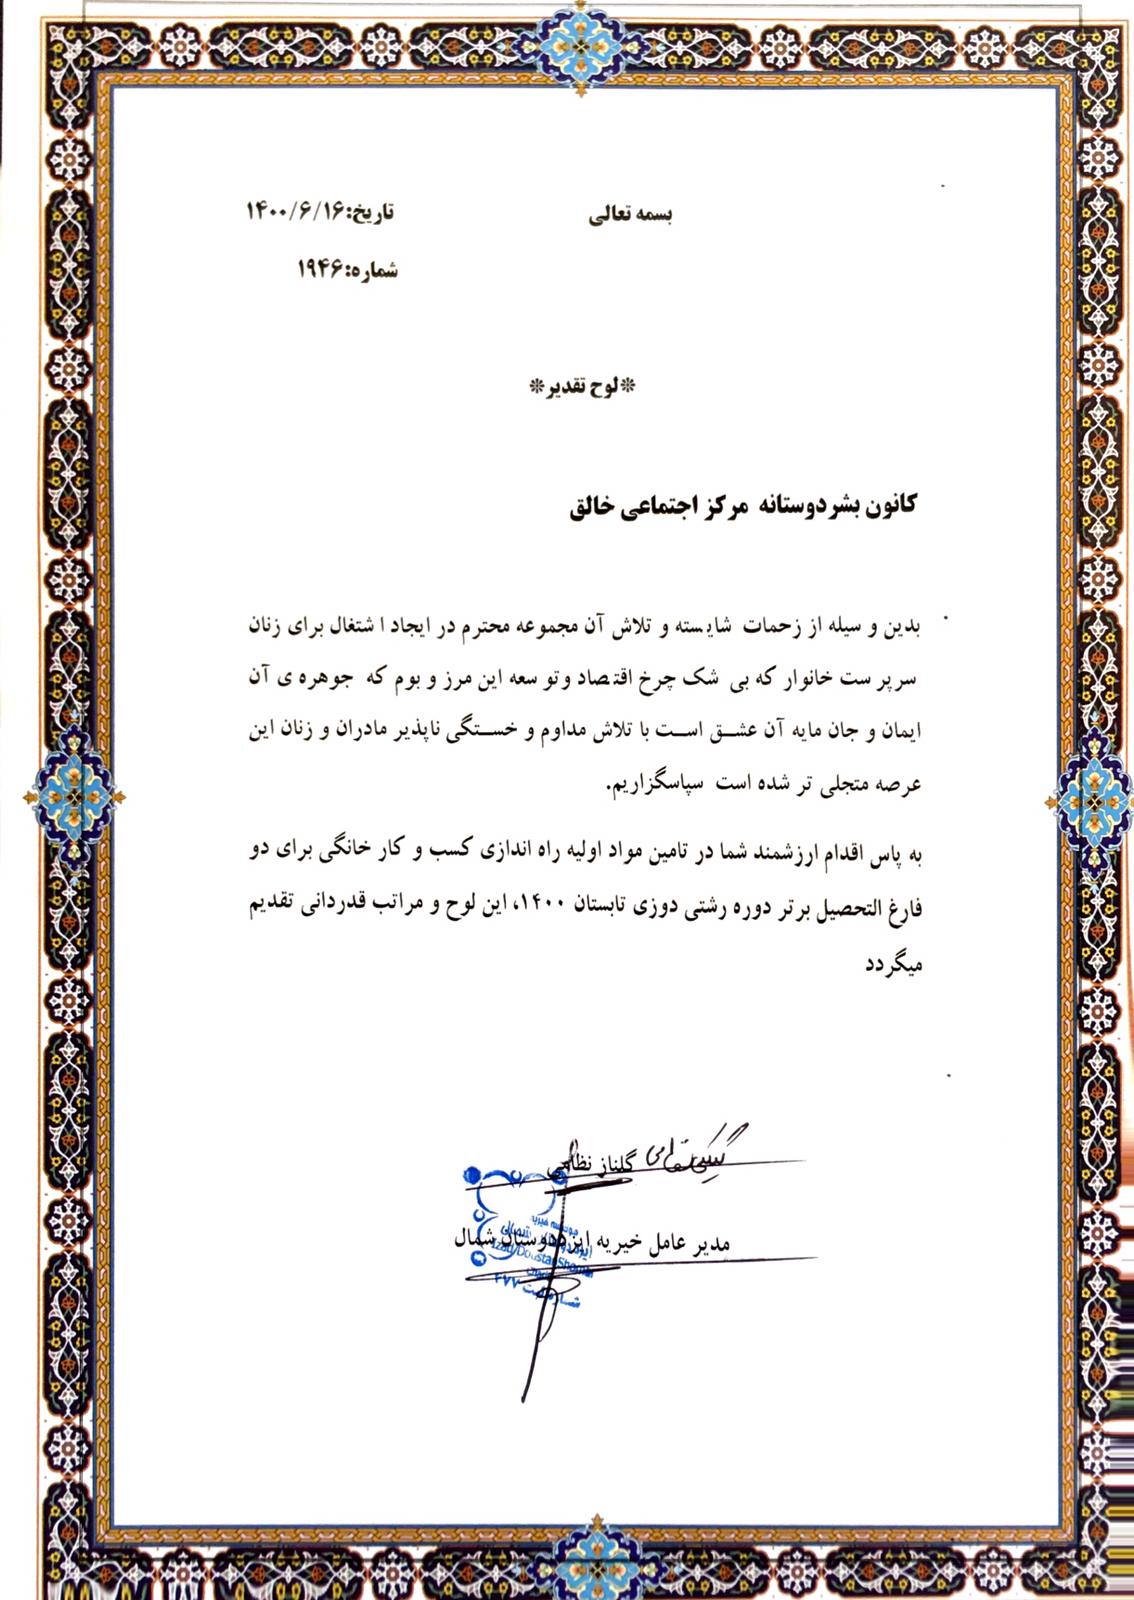 بسمه تعالی
تاریخ:۱۴۰۰/۶/۱۶
شماره:۱۹۴۶
*لوح تقدیر*
کانون بشردوستانه مرکز اجتماعی خالق
بدین و سیله از زحمات شایسته و تلاش آن مجموعه محترم در ایجاد ا شتغال برای زنان
سرپر ست خانوار که بی شک چرخ اقتصاد وتو سعه این مرز و بوم که جوهره ی آن
ایمان و جان مایه آن عشق است با تلاش مداوم و خستگی ناپذیر مادران و زنان این
عرصه متجلی تر شده است سپاسگزاریم.
به پاس اقدام ارزشمند شما در تامین مواد اولیه راه اندازی کسب و کار خانگی برای دو
فارغ التحصیل برتر دوره رشتی دوزی تابستان ۱۴۰۰، این لوح و مراتب قدردانی تقدیم
میگردد
گلناز نظامی
مدیر عامل خیریه ایزددوستان شمال
موسسه خیریه